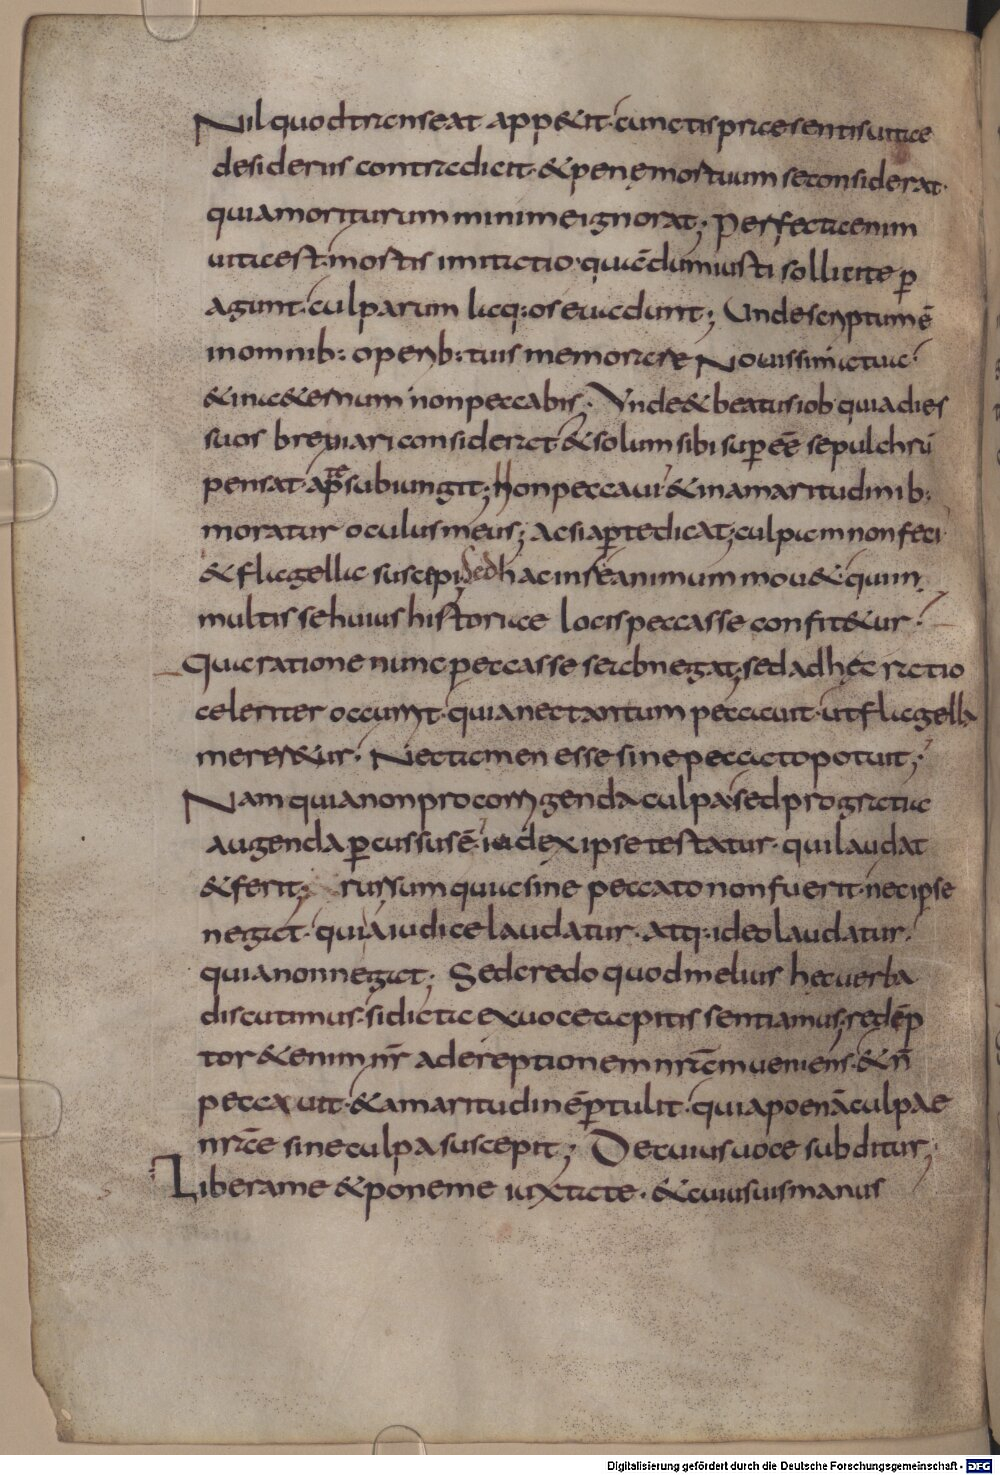 Nil quod transeat app&it· cunctis praesentis uitae
desideriis contradicit· & pene mortuum se considerat·
quia moriturum minime ignorat; Perfecta enim
uita est· mortis imitatio· quā dum iusti sollicite p̄
agunt· culparum laq:os euadunt; Unde scriptum ē
in omnib: operib: tuis memorare Nouissima tua·
& in ae&ernum non peccabis; Unde & beatus iob quia dies
suos breuiari considerat & solum sibi sup eē sepulchrū
pensat· apte subiungit; Non peccaui & in amaritudinib:
moratur oculus meus; ac si apte dicat; culpam non feci
& flagella suscepi; Sed hac in re animum mou& quū in
multis se huius historiae locis peccasse confit&ur;
Qua ratione nunc peccasse se abnegat; sed ad hęc ratio
celeriter occurrit· quia nec tantum peccauit· ut flagella
merer&ur· Nec tamen esse sine peccato potuit;
Nam quia non pro corrigenda culpa· sed pro gratia
augenda pcussus ē· iudex ipse testatur· qui laudat
& ferit; rursum quia sine peccato non fuerit· nec ipse
negat· qui a iudice laudatur· atq: ideo laudatur·
quia non negat; Sed credo quod melius hec uerba
discutimus· si dicta ex uoce capitis sentiamus; redēp
tor &enim nr̄ ad ereptionem nr̄am ueniens· & n̄
peccauit· & amaritudinē ptulit· quia poenā culpae
nr̄ae sine culpa suscepit; De cuius uoce subditur;
Libera me & pone me iuxta te· & cuiusuis manus
Digitalisierung gefördert durch die Deutsche Forschungsgemeinschaft - DFG